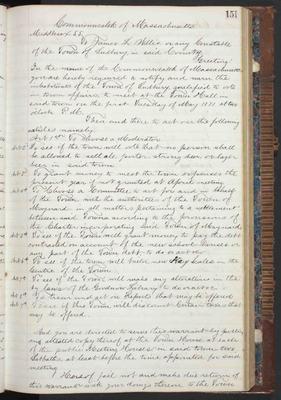 151
Commonwealth of Massachusetts
Middlesex S.S.
To James L. Willis or any Constable
of the Town of Sudbury in said County
Greeting:
In the name of the Commonwealth of Massachusetts
you are hereby required to notify and warn the
inhabitants of the Town of Sudbury qualified to vote
in town affairs to meet at the Town Hall in
said town on the first Tuesday of May 1871 at two
oclock P.M.
Then and there to act on the following
articles namely.
Art 1st To Choose a Moderator
Art 2d To see if the town will vote that no person shall
be allowed to sell ale, porter, strong beer or lager
beer in said town
Art 3d To grant money to meet the town expenses the
present year if not granted at April meeting
Art 4th To Choose a Committee to act for and in behalf
of the Town with the authorities of the Town of
Maynard in all matters pertaining to a settlement
between said Towns according to the provisions of
the Charter incorporating said Town of Maynard
Art 5th To see if the Town will grant money to pay the debt
contracted on account of the new school houses or
any part of the Town debt, or do or act
Art 6th To see if the town will build Hay Scales in the
Centre of the Town
Art 7th To see if the Town will make any alterations in the
by laws of the Goodnow Library or do or act
Art 8th To hear and act on Reports that may be offered
Art 9th To see if the Town will discount Certain taxes that
may be offered.
And you are directed to serve this warrant by posting
an attested copy thereof at the Town House & at each
of the public Meeting Houses in said town two
Sabbaths at least before the time appointed for said
meeting
Hereof fail not and make due return of
this warrant with your doings thereon to the Town